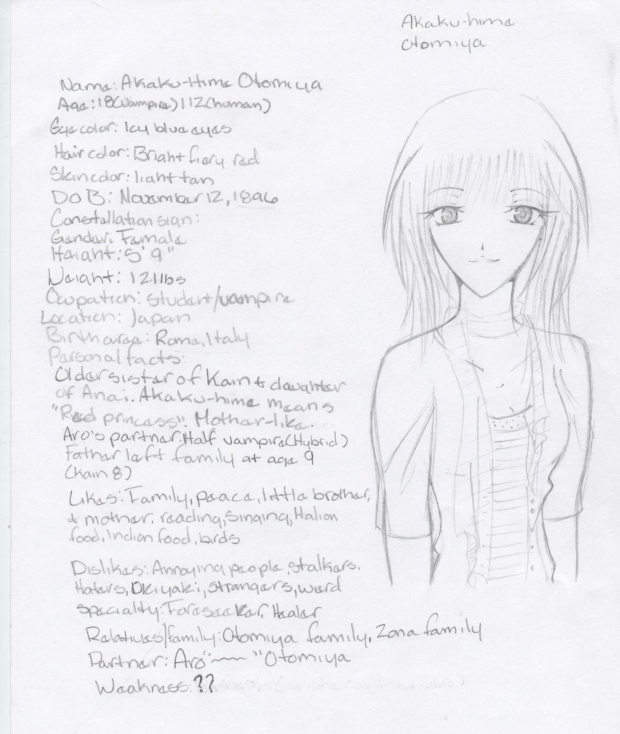 Akaku-hime
Otomiya
Name: Akaku-Hime Otomiya
Age: 18(Vampire) 112(human)
Eye color: Icy blue eyes
Hair color: Bright fiery red
Skin color: light tan
DOB: November 12, 1896
Constellation sign:
Gender: Female
Height: 5'9"
Weight: 121lbs
Occupation: student/vampire
Location: Japan
Birth area: Rome, Italy
Personal facts:
Older sister of Kain & daughter
of Anai. Akaku-hime means
"Red princess". Mother-like.
Aro's partner. Half vampire(Hybrid)
Father left family at age 9
(Kain 8)
Likes: Family, peace, little brother,
& mother. reading, Singing, Italian
food, Indian food, birds
Dislikes: Annoying people, stalkers,
Haters, strangers,
Speciality: Foreseeker, Healer
Relatives/family: Otomiya family, Zona family
Partner: Aro "~~~~" Otomiya
Weakness: ??